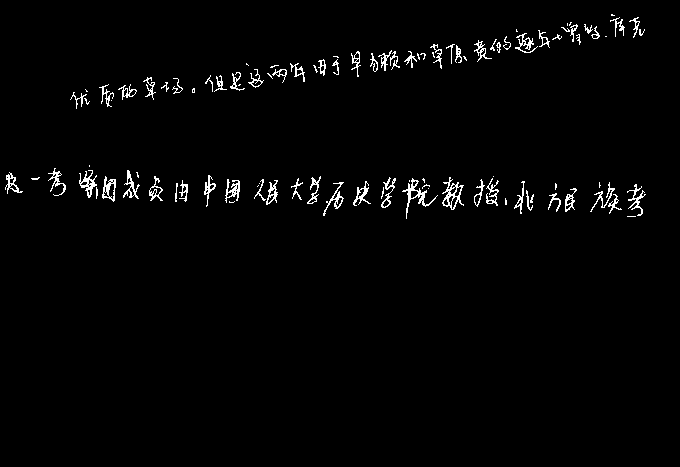 优质的草场。但是这两年由于旱频和草原黄的逐年增多、库克
这一考察团成员由中国人民大学历史学院教授、北方民族考